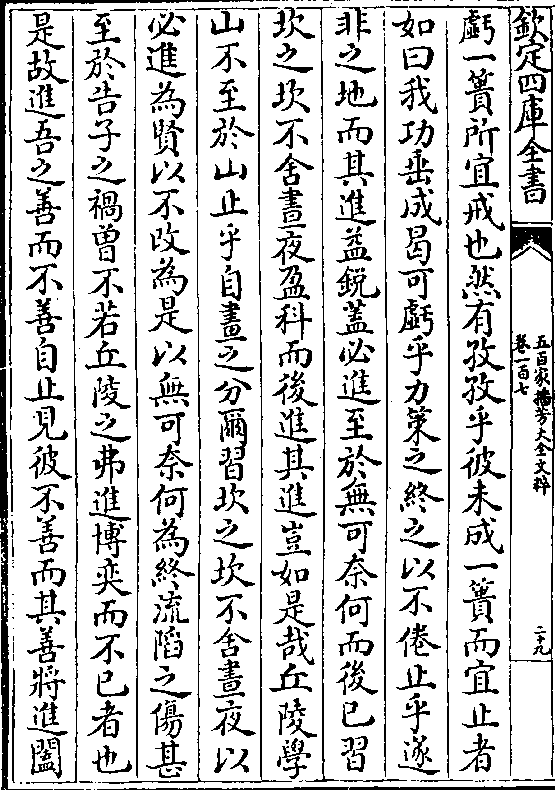 欽定四庫全書
五百家播芳大全文粹
卷一百七
二十九
虧一簣所宜戒也然有孜孜乎彼未成一簣而宜止者
如曰我功垂成曷可虧乎力策之終之以不倦止乎遂
非之地而其進益鋭蓋必進至於無可奈何而後已習
坎之坎不舍晝夜盈科而後進其進豈如是哉丘陵學
山不至於山止乎自畫之分爾習坎之坎不舍晝夜以
必進為賢以不改為是以無可奈何為終流滔之傷甚
至於告子之禍曽不若丘陵之弗進博奕而不已者也
是故進吾之善而不善自止見彼不善而其善將進闔